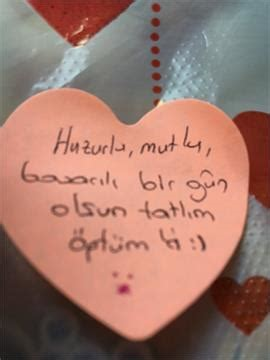 Huzurlu, mutlu,
başarılı bir gün
olsun tatlım
öptüm :)